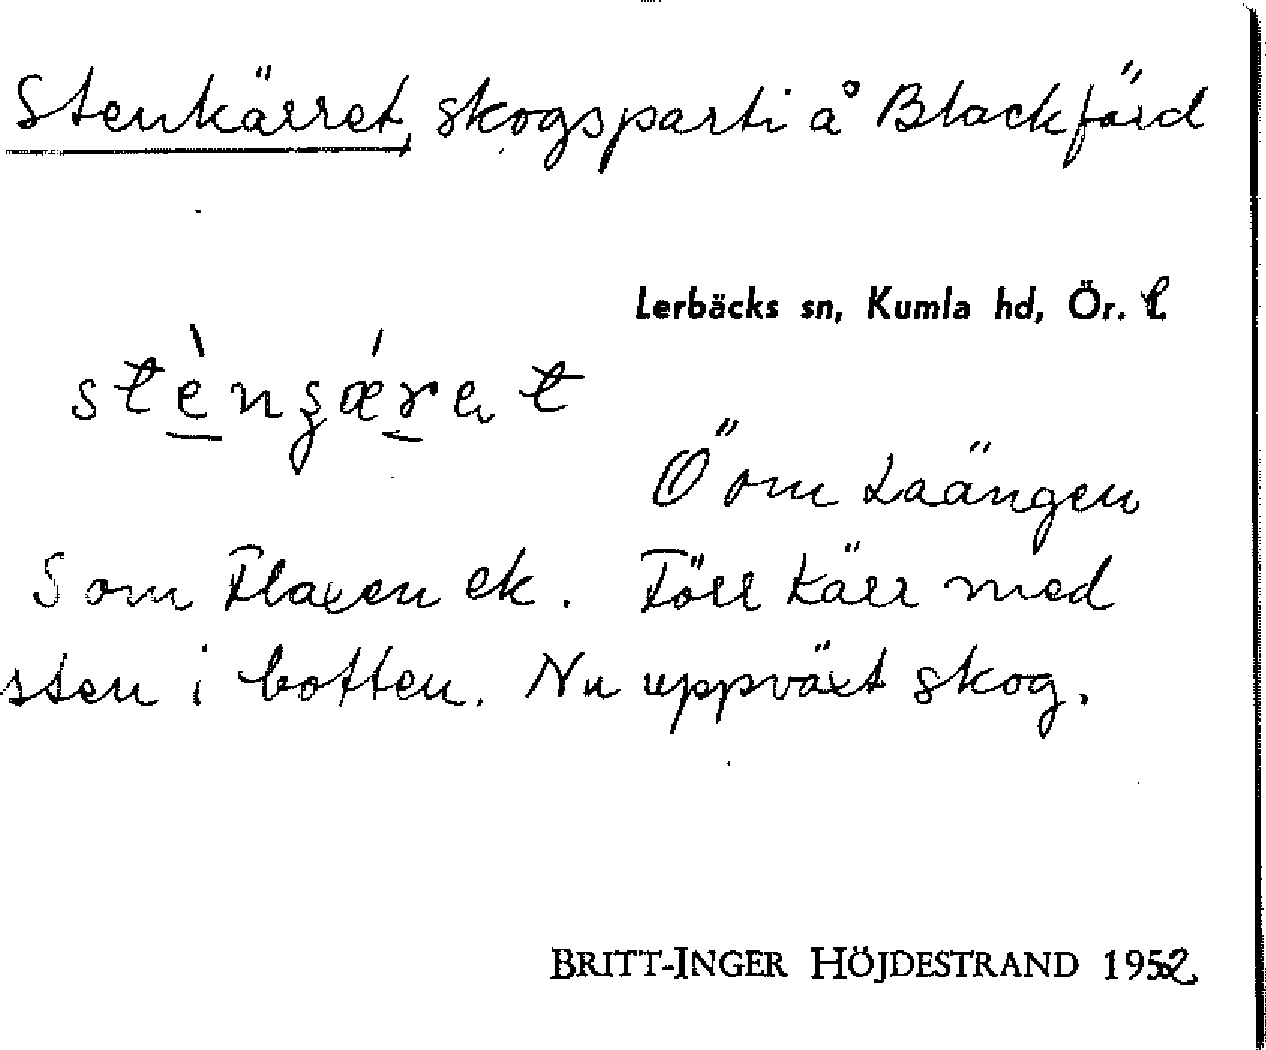 Stenkärret, skogsparti å Blackfärd
Lerbäcks sn, Kumla hd, Ör. l
Ö om Laängen
Som Flaxen ek. Förr kärr med
sten i botten. Nu uppväxt skog.
BRITT-INGER HÖJDESTRAND 1952